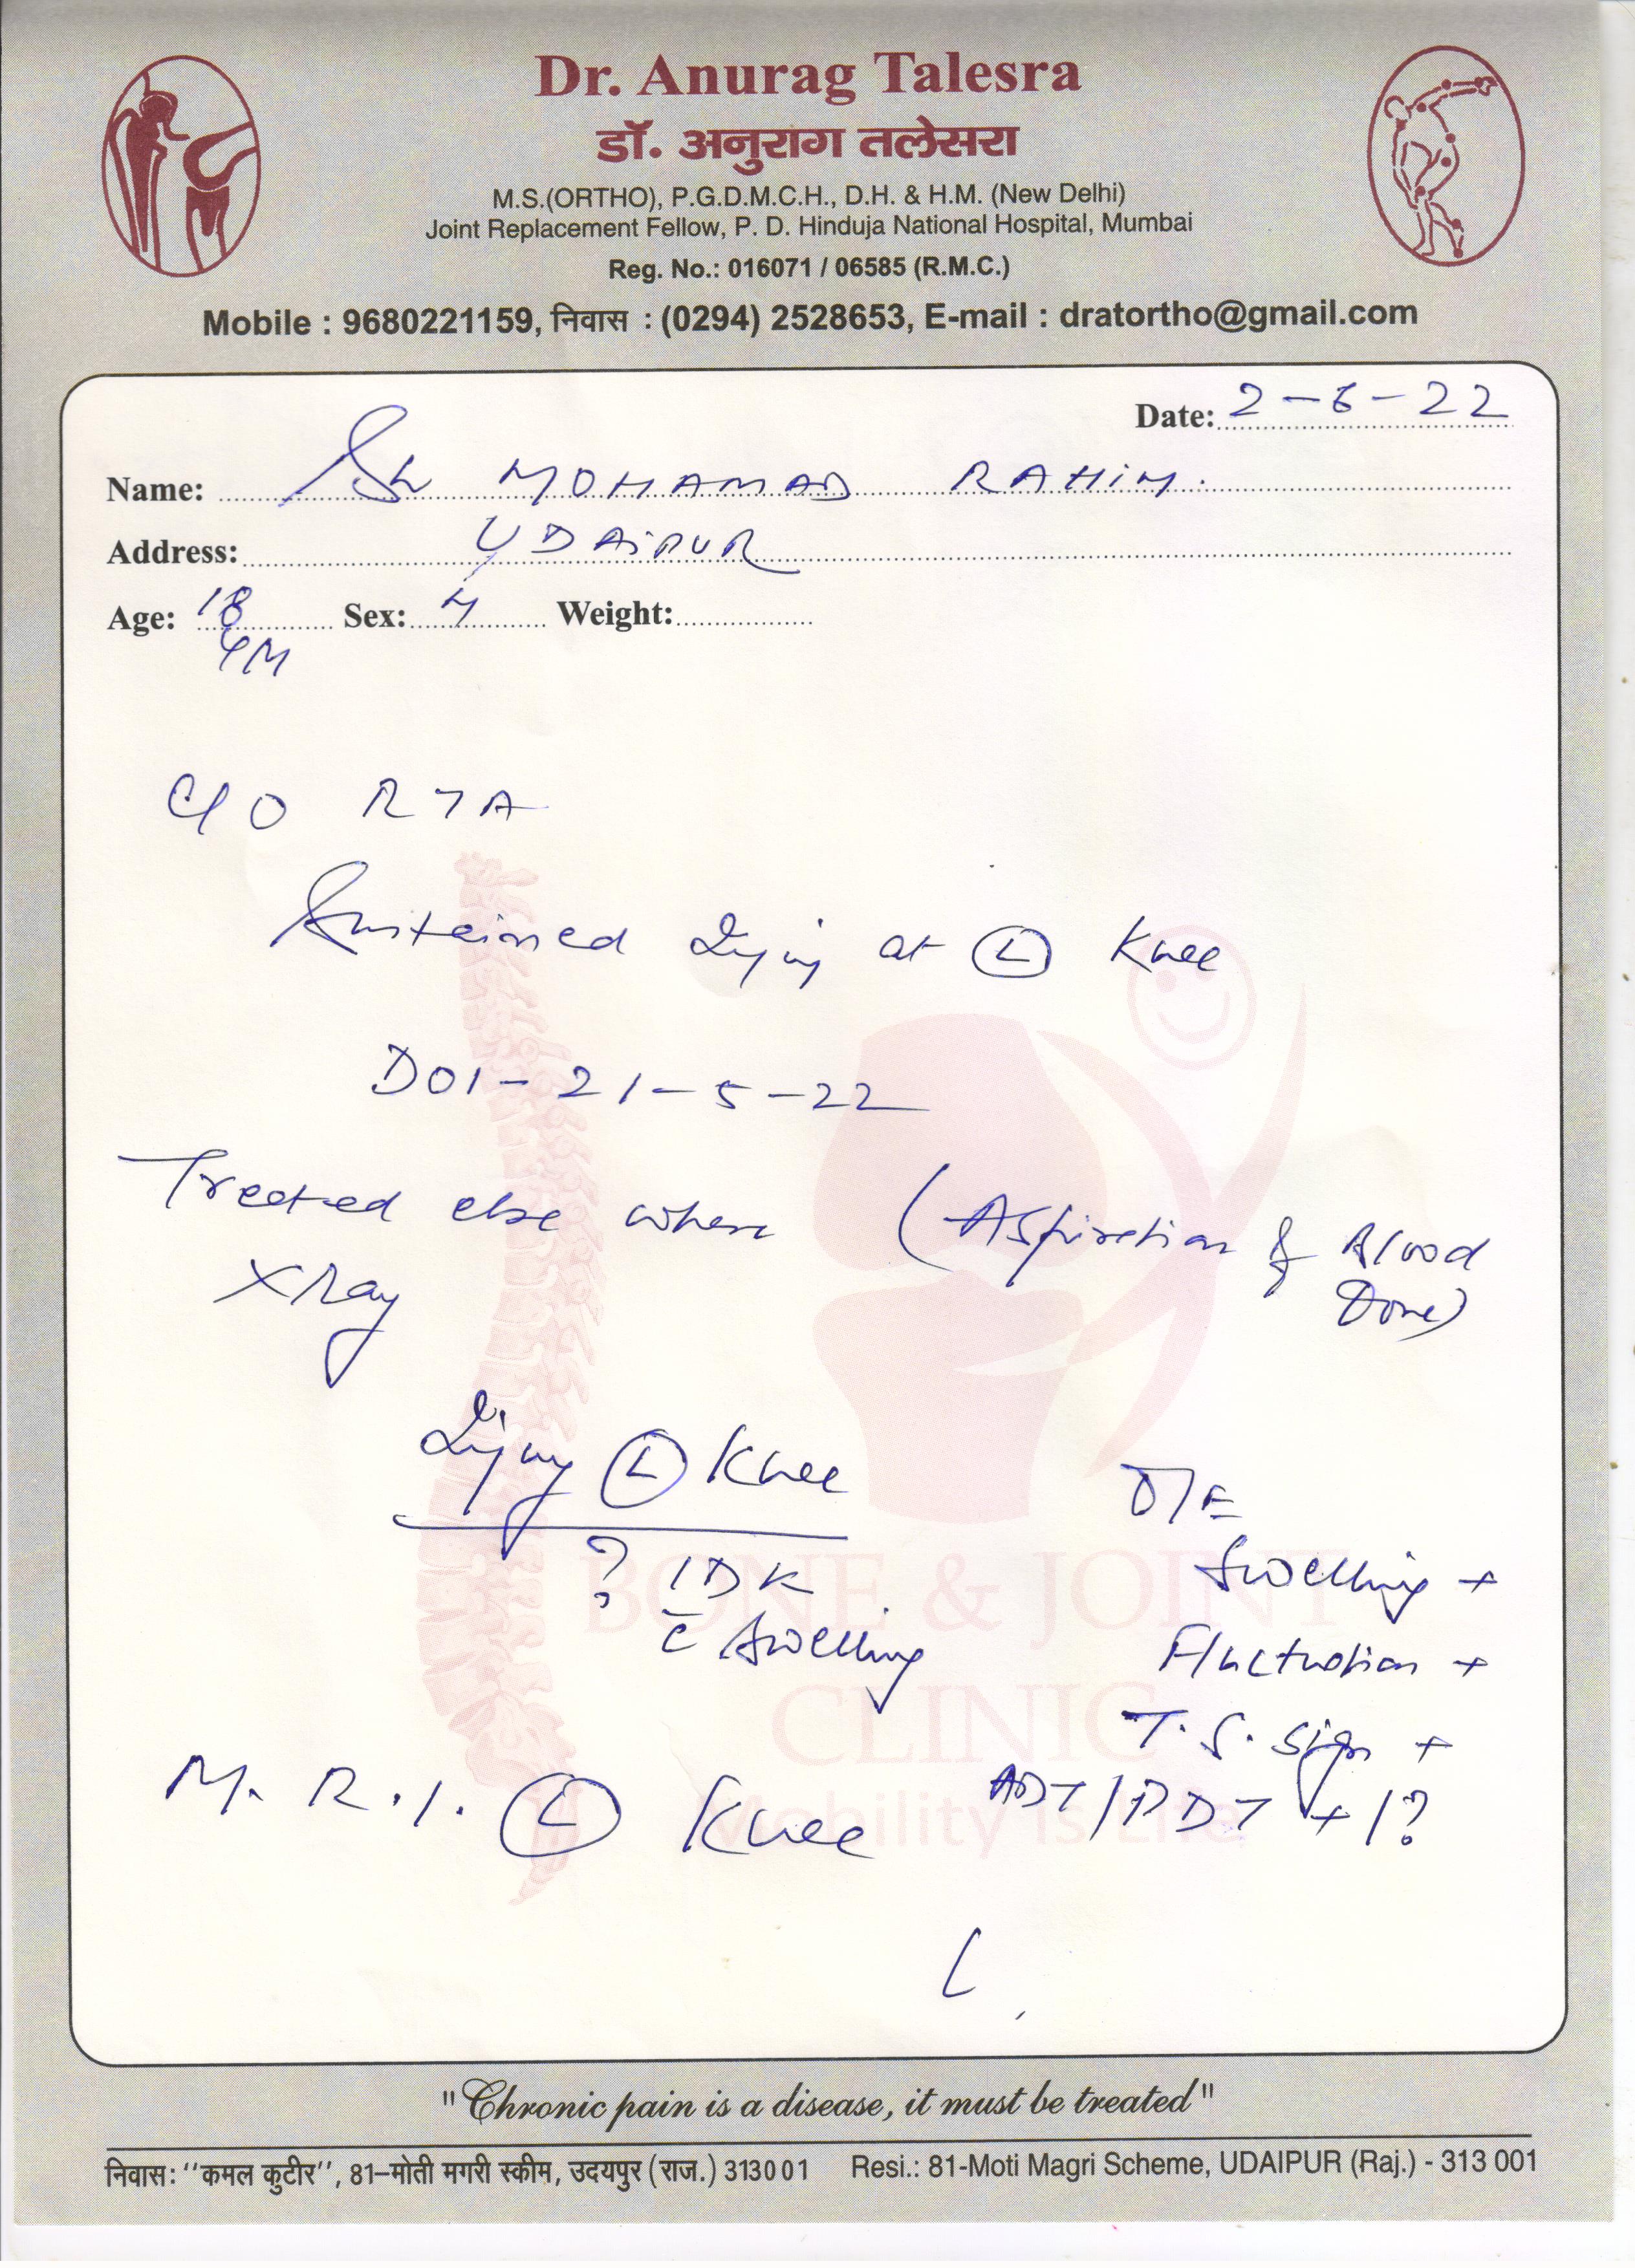 Dr. Anurag Talesra
डॉ. अनुराग तलेसरा
M.S.(ORTHO), P.G.D.M.C.H., D.H. & H.M. (New Delhi)
Joint Replacement Fellow, P. D. Hinduja National Hospital, Mumbai
Reg. No.: 016071 / 06585 (R.M.C.)
Mobile : 9680221159, निवास : (0294) 2528653, E-mail : dratortho@gmail.com
Date: 2-6-22
Name: Sh MOHAMAD RAHIM.
Address: UDAIPUR
Age: 18 Sex: M Weight:
C/O RTA
Sustained Injury at (L) Knee
DOI - 21-5-22
Treated else where (Aspiration of Blood
Done)
XRay
Injury (L) Knee
? IDK
c̄ Swelling
O/E
Swelling +
Fluctuation +
T.S. sign +
ADT/PDT +/?
M.R.I. (L) Knee
BONE & JOINT
CLINIC
Mobility is Life
"Chronic pain is a disease, it must be treated"
निवास: ''कमल कुटीर'', 81–मोती मगरी स्कीम, उदयपुर (राज.) 313001 Resi.: 81-Moti Magri Scheme, UDAIPUR (Raj.) - 313 001